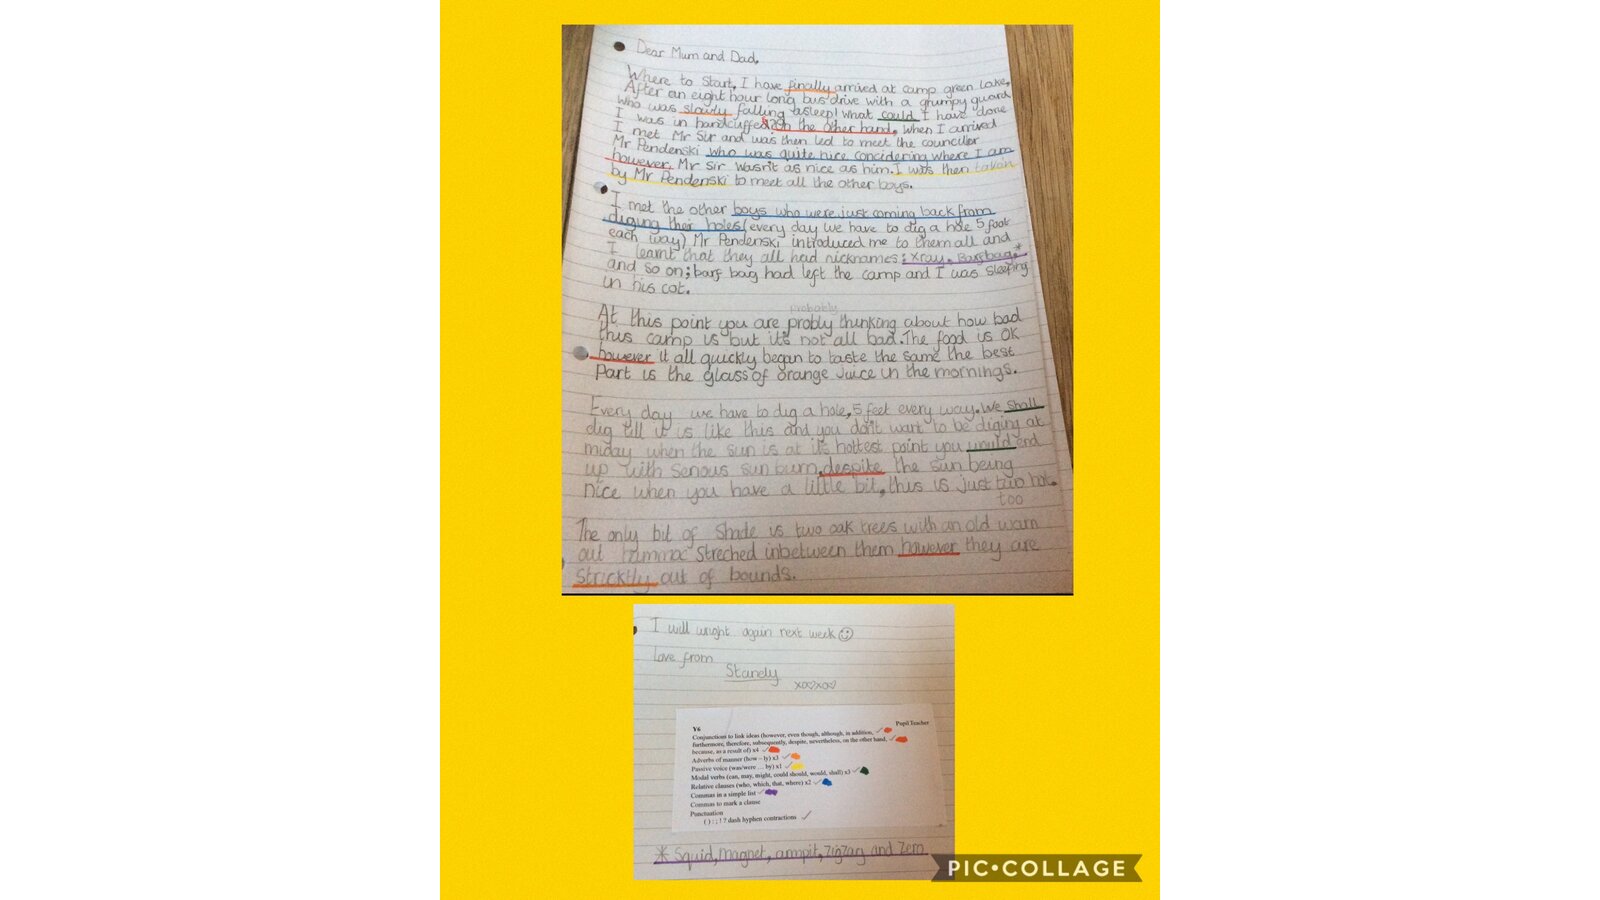 Dear Mum and Dad,
Where to Start, I have finally arrived at camp green lake,
After an eight hour long bus drive with a grumpy guard
who was slowly falling asleep! What could I have done
I was in handcuffes? on the other hand, when I arrived
I met Mr Sir and was then led to meet the councilor
Mr Pendenski who was quite nice concidering where I am
however, Mr Sir wasn't as nice as him. I was then taken
by Mr Pendenski to meet all the other boys.
I met the other boys who were just coming back from
diging their holes (every day we have to dig a hole 5 foot
each way) Mr Pendenski introduced me to them all and
I learnt that they all had nicknames: xray, Barfbag,*
and so on; barf bag had left the camp and I was sleeping
in his cot.
probably
At this point you are probly thinking about how bad
this camp is but it's not all bad. The food is OK
however it all quickly began to taste the same the best
part is the glass of orange juice in the mornings.
Every day we have to dig a hole, 5 feet every way. We shall
dig till it is like this and you don't want to be diging at
miday when the sun is at its hottest point you would end
up with serious sun burn, despite the sun being
nice when you have a little bit, this is just two hot.
too
The only bit of shade is two oak trees with an old warn
out hammoc streched inbetween them however they are
stricktly out of bounds.
I will wright again next week
love from
Stanely
xo♡xo♡
Y6 Pupil Teacher
Conjunctions to link ideas (however, even though, although, in addition,
furthermore, therefore, subsequently, despite, nevertheless, on the other hand,
because, as a result of) x4
Adverbs of manner (how – ly) x3
Passive voice (was/were … by) x1
Modal verbs (can, may, might, could should, would, shall) x3
Relative clauses (who, which, that, where) x2
Commas in a simple list
Commas to mark a clause
Punctuation
( ) : ; ! ? dash hyphen contractions
* Squid, magnet, armpit, zigzag and Zero
PIC•COLLAGE